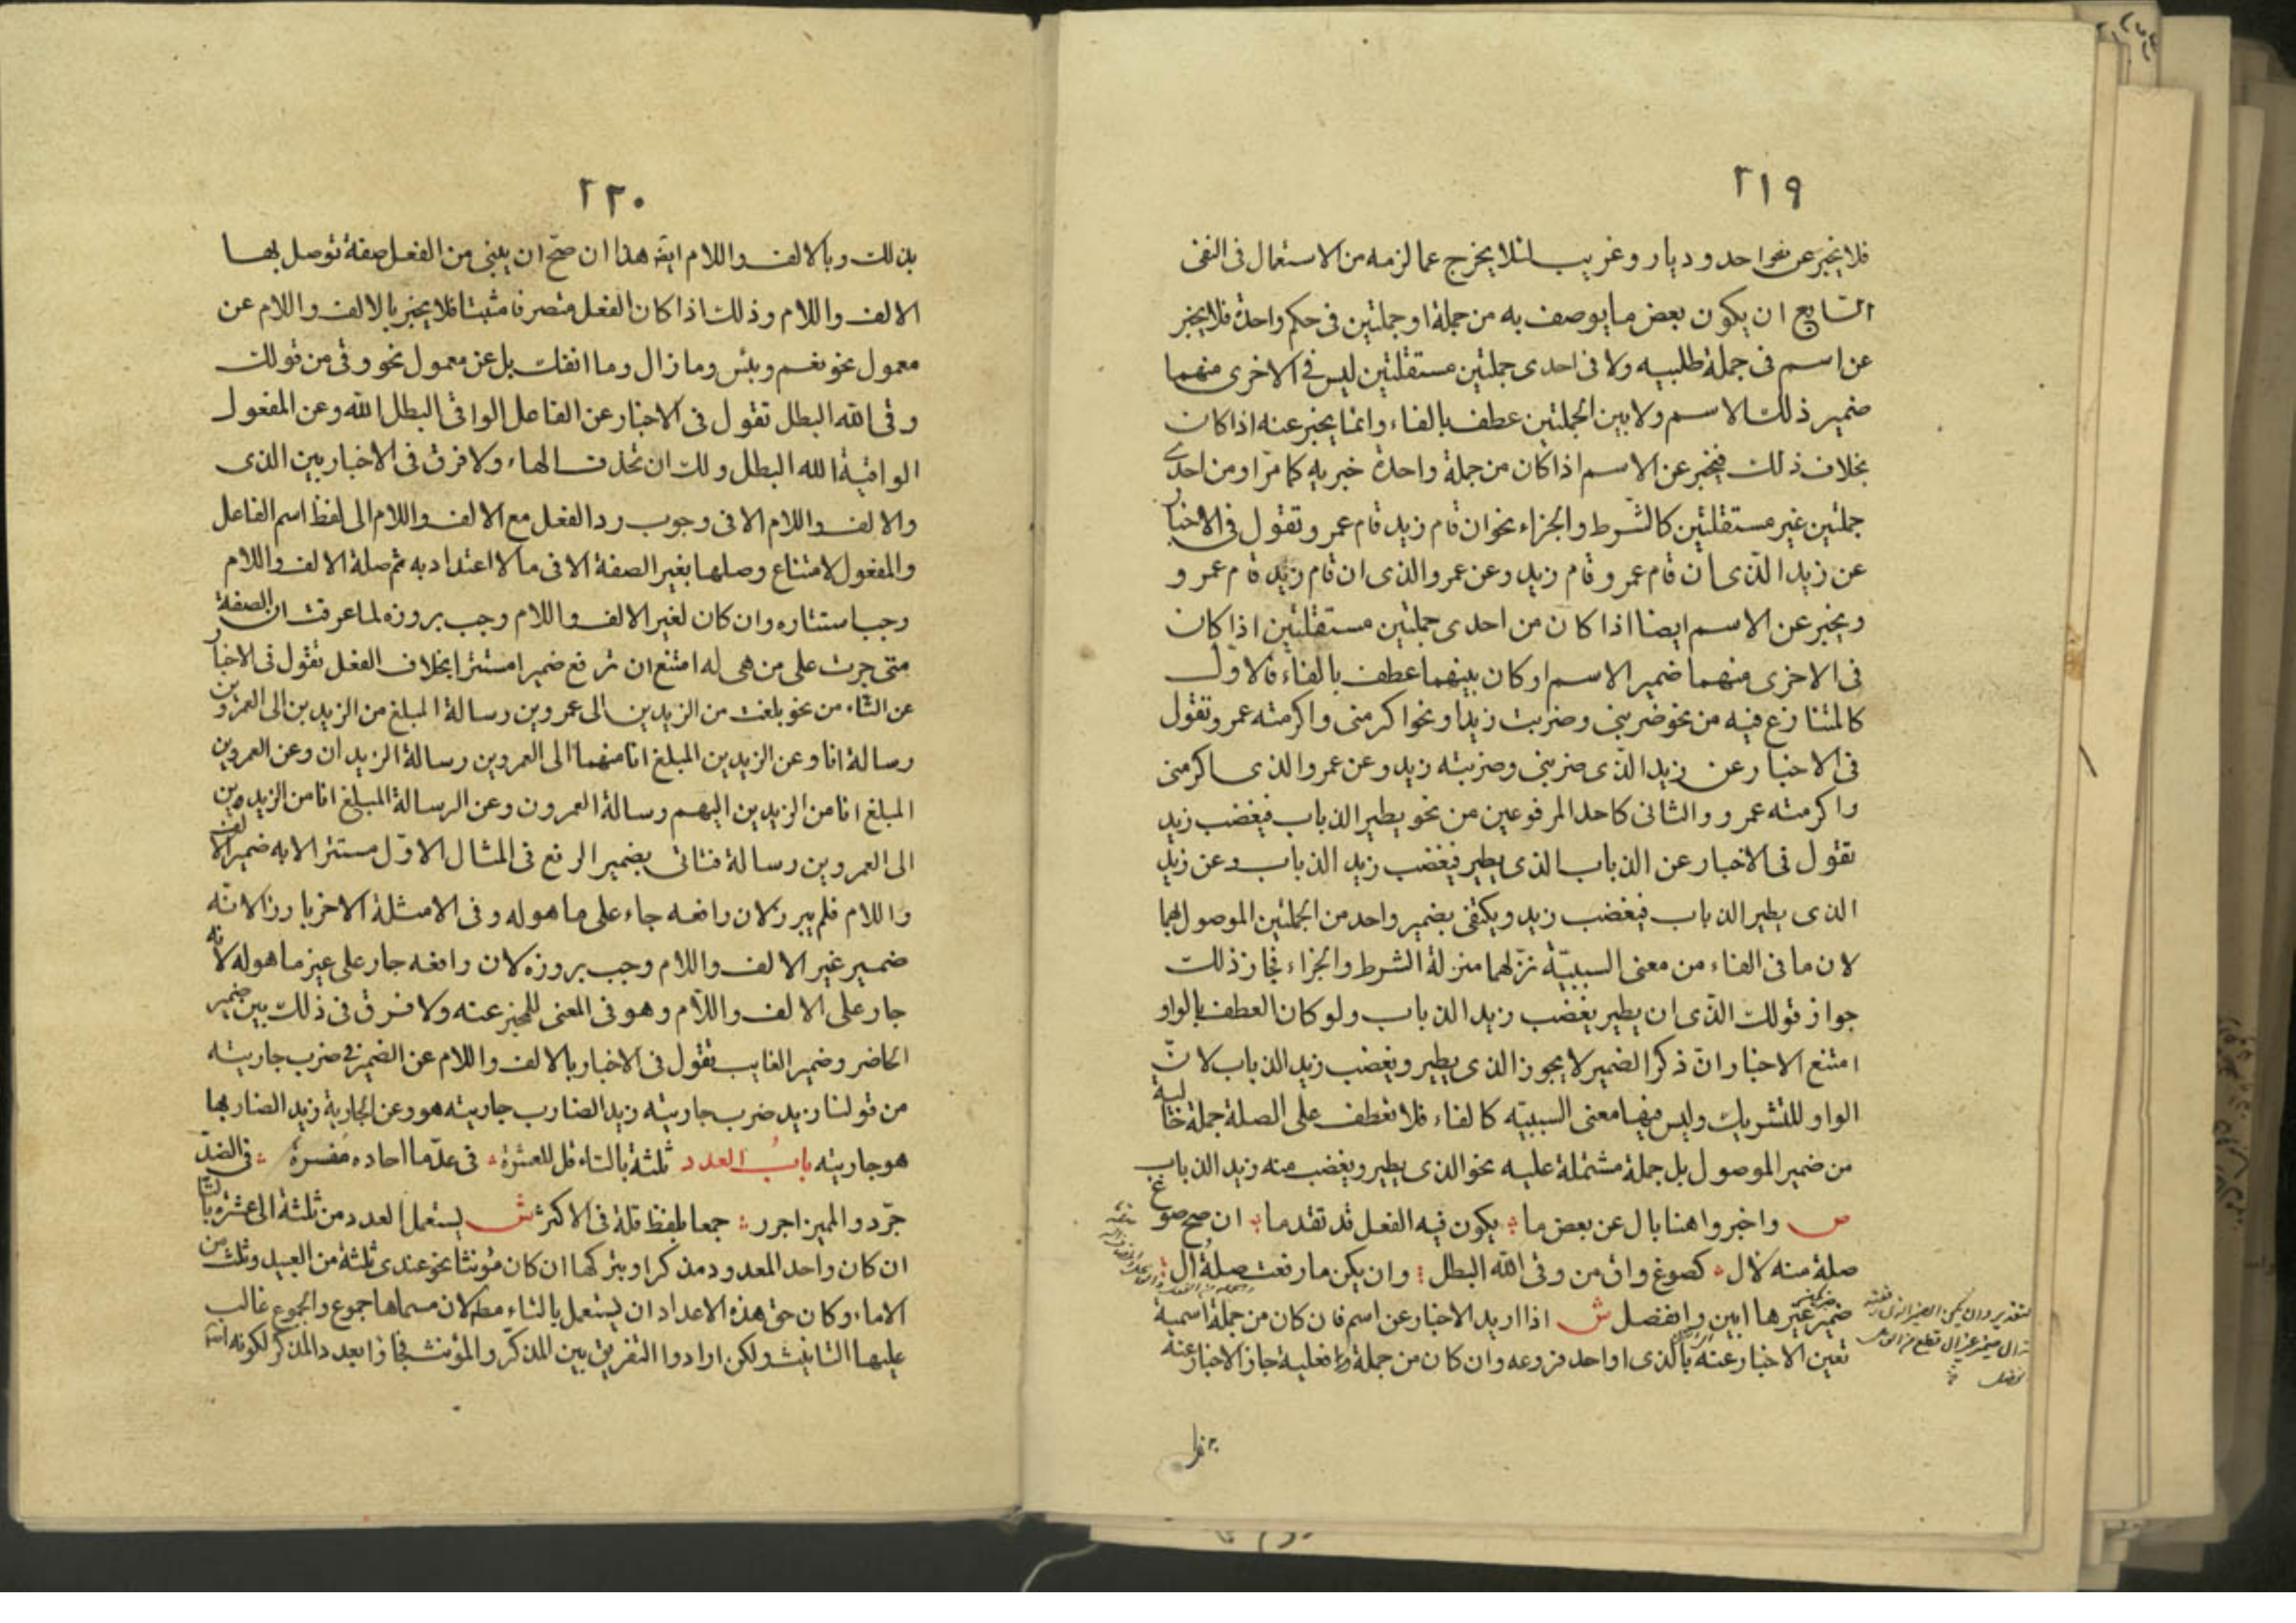 ٢١٩
فلا يخبر عن نحو احد وديار وغريب لئلا يخرج عما لزمه من الاستعمال فى النفى
السابع ان يكون بعض ما يوصف به من جملة او جملتين فى حكم واحدة فلا يخبر
عن اسم فى جملة طلبيه ولا فى احدى جملتين مستقلتين ليس فى الاخرى منهما
ضمير ذلك الاسم ولا بين الجملتين عطف بالفاء وانما يخبر عنه اذا كان
بخلاف ذلك فيخبر عن الاسم اذا كان من جملة واحدة خبريه كما مرّ او من احدى
جملتين غير مستقلتين كالشّرط والجزاء نحو ان قام زيد قام عمرو تقول فى الاخبار
عن زيد الّذى ان قام عمرو قام زيد وعن عمرو الذى ان قام زيد قام عمرو
ويخبر عن الاسم ايضا اذا كان من احدى جملتين مستقلتين اذا كان
فى الاخرى منهما ضمير الاسم او كان بينهما عطف بالفاء فالاوّل
كالمتنازع فيه من نحو ضربنى وضربت زيدا ونحو اكرمنى واكرمته عمرو تقول
فى الاخبار عن زيد الّذى ضربنى وضربته زيد وعن عمرو الذى اكرمنى
واكرمته عمرو والثانى كاحد المرفوعين من نحو يطير الذباب فيغضب زيد
تقول فى الاخبار عن الذباب الذى يطير فيغضب زيد الذباب وعن زيد
الذى يطير الذباب فيغضب زيد ويكتفى بضمير واحد من الجملتين الموصول بهما
لان ما فى الفاء من معنى السببيّة نزّلهما منزلة الشرط والجزاء فجاز ذلك
جواز قولك الّذى ان يطير يغضب زيد الذباب ولو كان العطف بالواو
امتنع الاخبار انّ ذكر الضمير لا يجوز الذى يطير ويغضب زيد الذباب لانّ
الواو للتشريك وليس فيها معنى السببيّه كالفاء فلا تعطف على الصلة جملة خالية
من ضمير الموصول بل جملة مشتملة عليه نحو الذى يطير ويغضب منه زيد الذباب
ص واخبروا هنا بال عن بعض ما يكون فيه الفعل قد تقدما ان صح صوغ
صلة منه لال كصوغ واق من وقى الله البطل وان يكن ما رفعت صلة ال
ضمير غيرها ابين وانفصل ش اذا اريد الاخبار عن اسم فان كان من جملة اسمية
تعين الاخبار عنه بالذى او احد فروعه وان كان من جملة فعلية جاز الاخبار عنه
٢٢٠
بذلك وبالالف واللام ايضا هذا ان صحّ ان يبنى من الفعل صفة توصل بها
الالف واللام وذلك اذا كان الفعل متصرفا مثبتا فلا يخبر بالالف واللام عن
معمول نحو نعم وبئس وما زال وما انفك بل عن معمول نحو وقى من قولك
وقى الله البطل تقول فى الاخبار عن الفاعل الواقى البطل الله وعن المفعول
الواقيه الله البطل ولك ان تحذف الهاء ولا فرق فى الاخبار بين الذى
والالف واللام الا فى وجوب رد الفعل مع الالف واللام الى لفظ اسم الفاعل
والمفعول لامتناع وصلها بغير الصفة الا فى ما لا اعتداد به ثم صلة الالف واللام
وجب استتاره وان كان لغير الالف واللام وجب بروزه لما عرفت ان الصفة
متى جرت على من هى له امتنع ان ترفع ضميرا مستترا بخلاف الفعل تقول فى الاخبار
عن التاء من نحو بلغت من الزيدين الى عمروين رسالة المبلغ من الزيدين الى العمروين
رسالة انا وعن الزيدين المبلغ انا منهما الى العمروين رسالة الزيدان وعن العمروين
المبلغ انا من الزيدين اليهم رسالة العمرون وعن الرسالة المبلغ انا من الزيدين
الى العمروين رسالة فتاتى بضمير الرفع فى المثال الاوّل مستترا لانه ضمير الالف
واللام فلم يبرز لان رافعه جاء على ما هو له وفى الامثلة الاخر بارزا لانّه
ضمير غير الالف واللام وجب بروزه لان رافعه جار على غير ما هو له لانه
جار على الالف واللّام وهو فى المعنى للمخبر عنه ولا فرق فى ذلك بين ضمير
الحاضر وضمير الغايب تقول فى الاخبار بالالف واللام عن الضمير فى ضرب جاريته
من قولنا زيد ضرب جاريته زيد الضارب جاريته هو وعن الجارية زيد الضاربها
هو جاريته باب العدد ثلثة بالتاء قل للعشرة فى عدّ ما احاده مفسرة فى الضدّ
جرّد والمميز اجرر جمعا بلفظ قلة فى الاكثر ش يستعمل العدد من ثلثة الى عشرة بالتا
ان كان واحد المعدود مذكرا وبتركها ان كان مؤنثا نحو عندى ثلثة من العبيد وثلث من
الاماء وكان حق هذه الاعداد ان يستعمل بالتاء مط لان مسماها جموع والجموع غالب
عليها التانيث ولكن ارادوا التفريق بين المذكّر والمؤنث فجاؤا بعدد المذكر لكونه